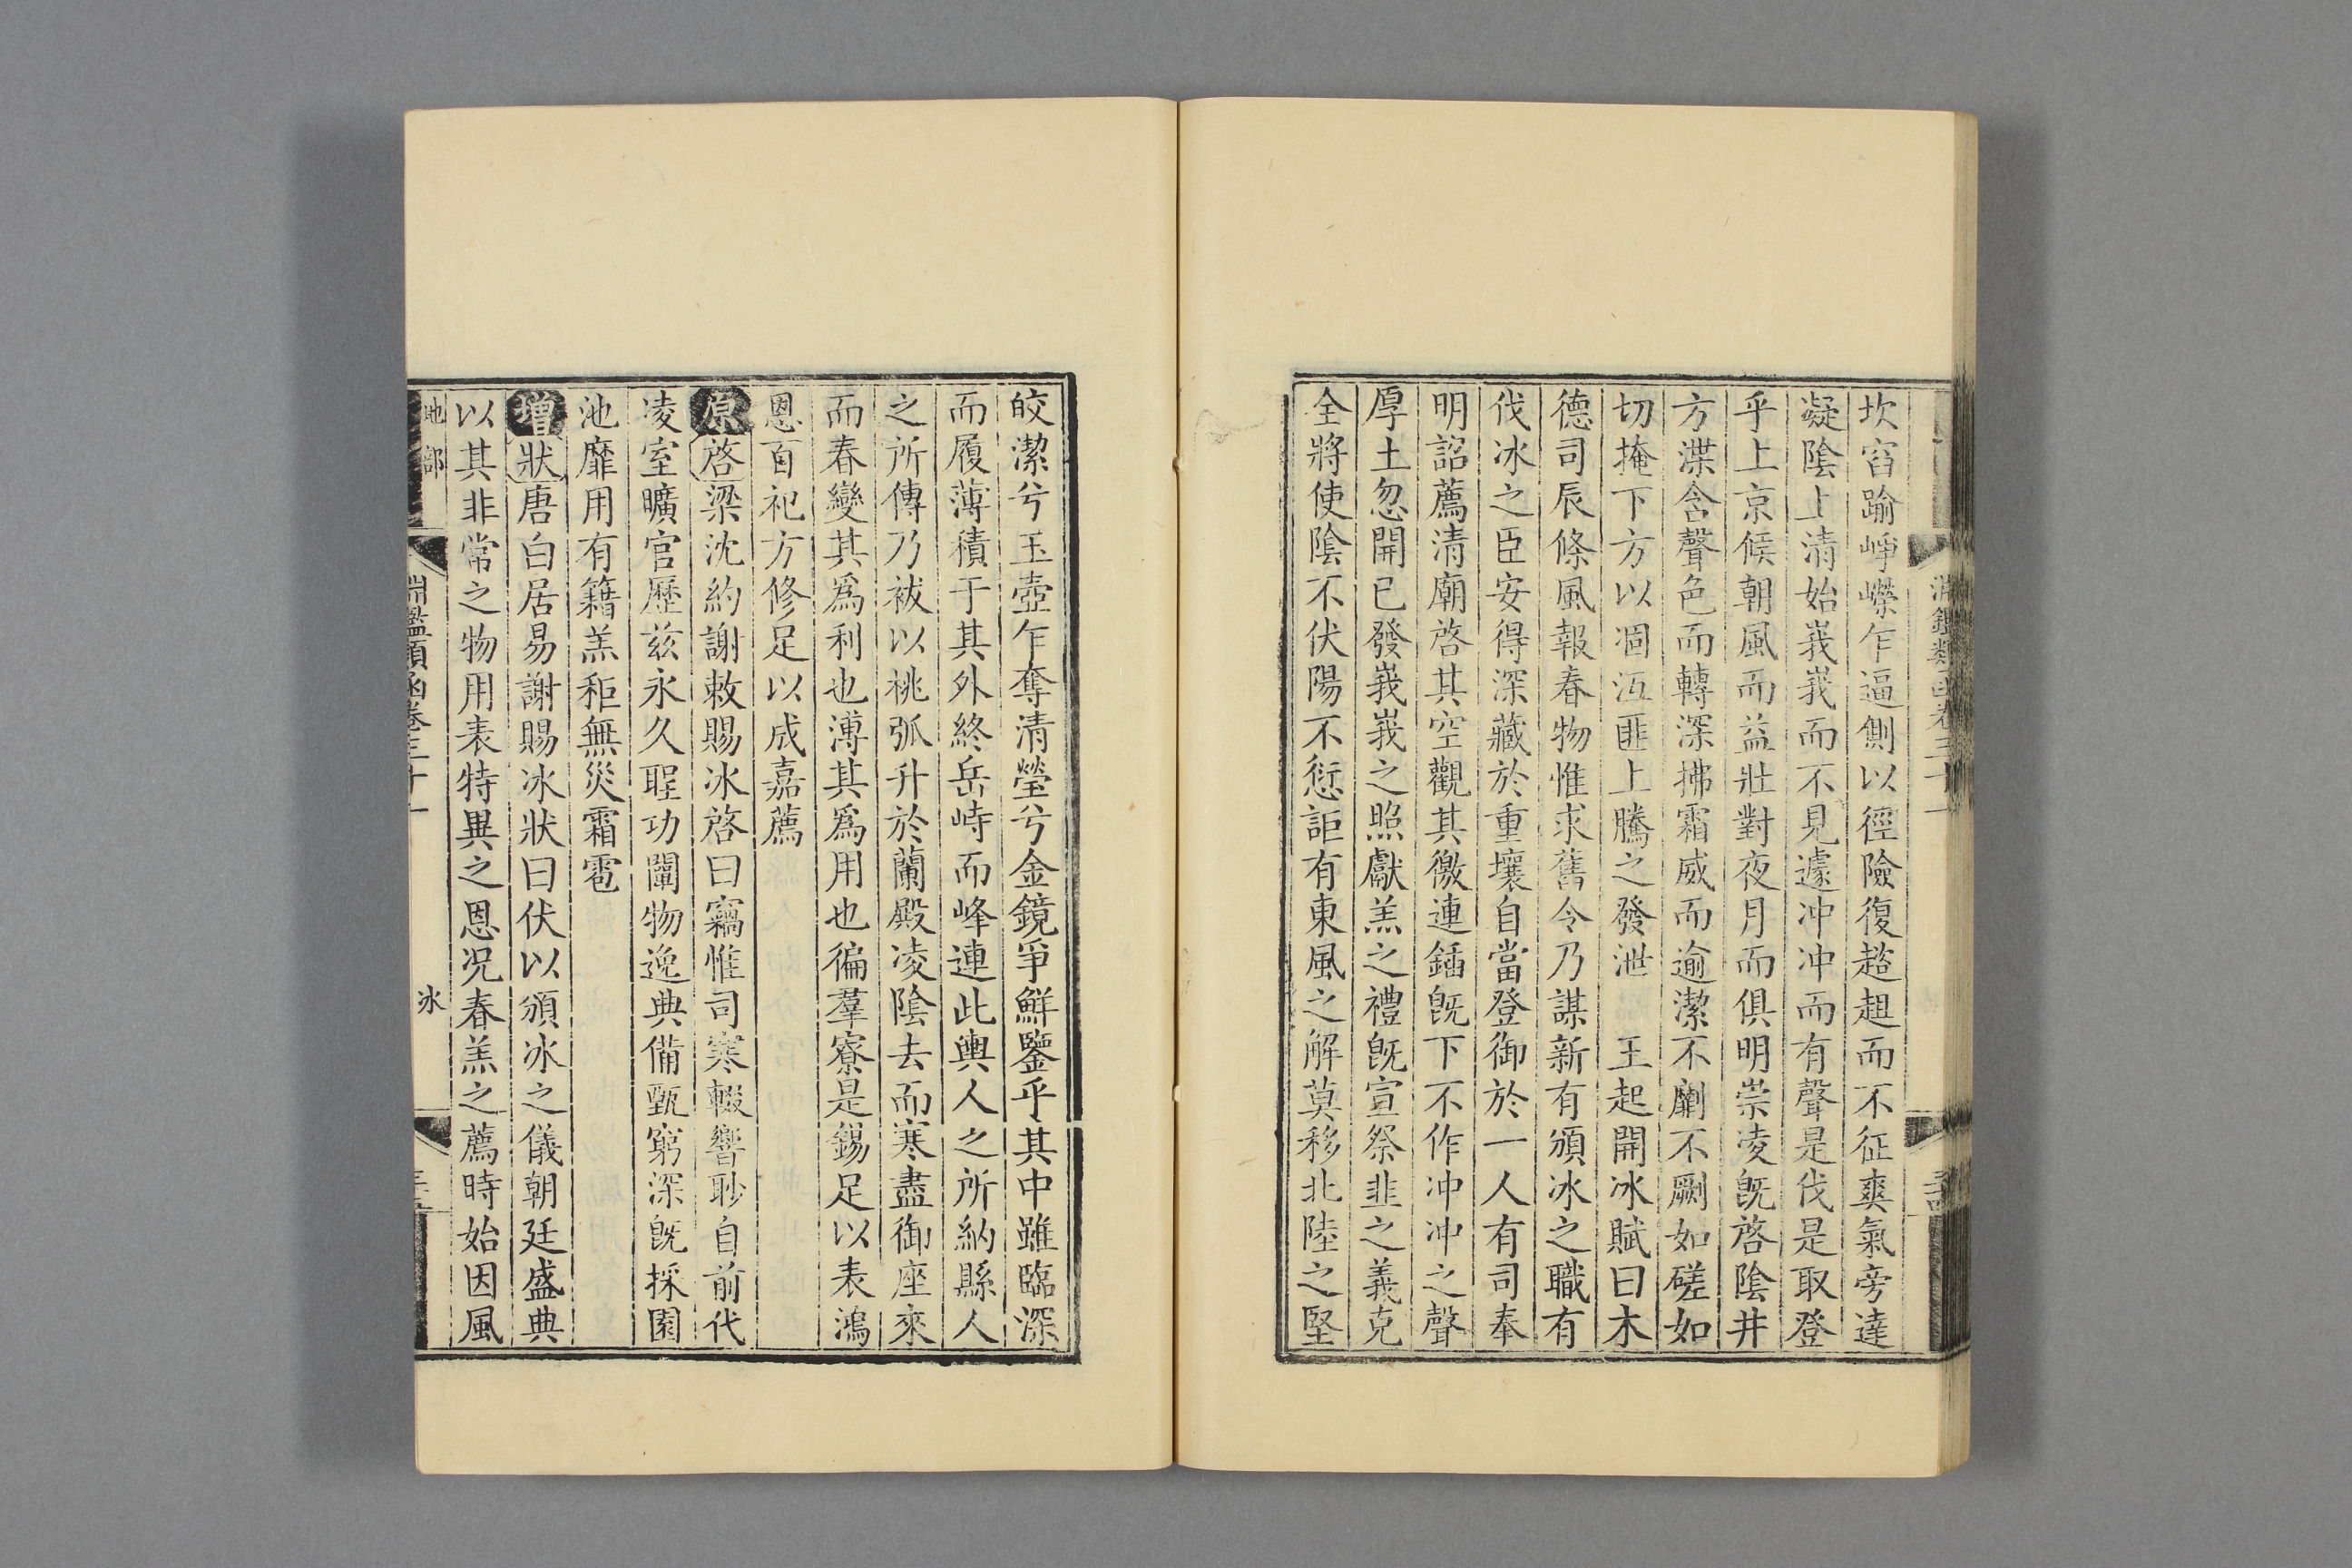 坎窞踰崢嶸乍逼側以徑險復趦趄而不征爽氣旁達
凝陰上清始峩峩而不見遽冲冲而有聲是伐是取登
乎上京候朝風而益壯對夜月而俱明崇凌旣啓陰井
方渫含聲色而轉深拂霜威而逾潔不劘不劂如磋如
切掩下方以涸沍匪上騰之發泄　王起開冰賦曰木
德司辰條風報春物惟求舊令乃謀新有頒冰之職有
伐冰之臣安得深藏於重壤自當登御於一人有司奉
明詔薦清廟啓其空觀其徼連鍤旣下不作冲冲之聲
厚土忽開已發峩峩之照獻羔之禮旣宣祭韭之義克
全將使陰不伏陽不愆詎有東風之解莫移北陸之堅
皎潔兮玉壺乍奪清瑩兮金鏡爭鮮鑒乎其中雖臨深
而履薄積于其外終岳峙而峰連此輿人之所納縣人
之所傳乃祓以桃弧升於蘭殿凌陰去而寒盡御座來
而春變其爲利也溥其爲用也徧羣寮是錫足以表鴻
恩百祀方修足以成嘉薦
原啓梁沈約謝敕賜冰啓曰竊惟司寒輟響聆自前代
凌室曠官歷茲永久聖功闡物逸典備甄窮深旣採園
池靡用有籍羔秬無災霜雹
增狀唐白居易謝賜冰狀曰伏以頒冰之儀朝廷盛典
以其非常之物用表特異之恩况春羔之薦時始因風
地部
淵鑑類函卷三十一
冰